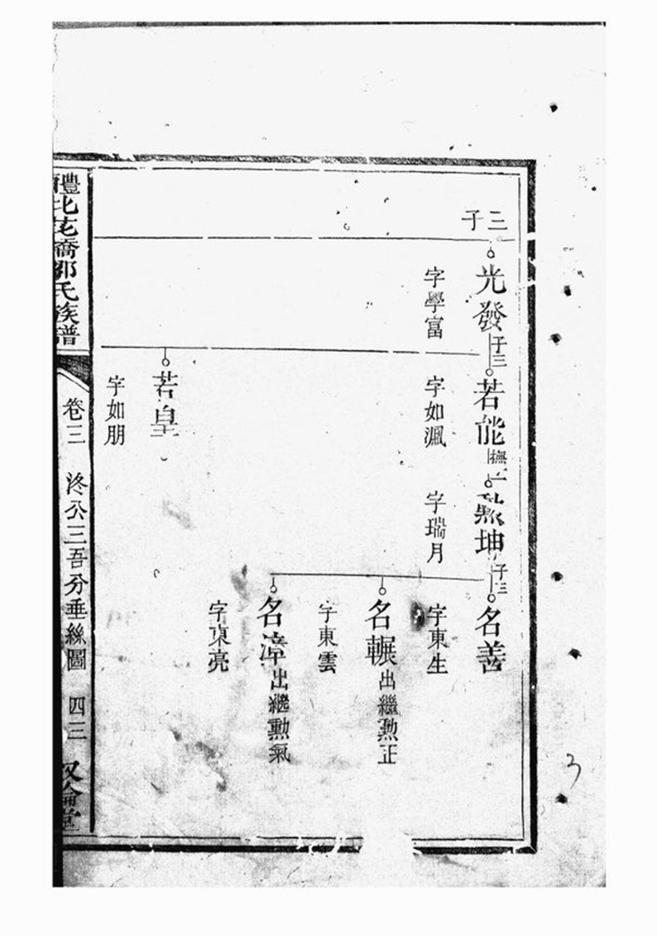 三子
光發
字學富
子三
若能
字如渢
撫一
勲坤
字瑞月
子三
名善
字東生
名輾出繼勲正
字東雲
名漳出繼勲氣
字東亮
若皇
字如朋
澧北花橋郭氏族譜
卷三
洛公三吾分垂絲圖
四三